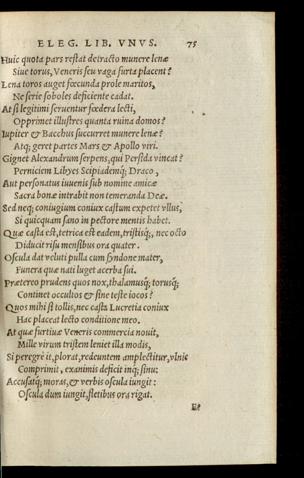 ELEG. LIB. VNVS. 75
Huic quota pars restat detracto munere lenæ
Siue torus, Veneris seu uaga furta placent?
Lena toros auget fœcunda prole maritos,
Ne serie soboles deficiente cadat.
At si legitimi seruentur fœdera lecti,
Opprimet illustres quanta ruina domos?
Iupiter & Bacchus succurret munere lenæ?
Atq; geret partes Mars & Apollo uiri.
Gignet Alexandrum serpens, qui Persida uincat?
Perniciem Libyes Scipiademq; Draco,
Aut personatus iuuenis sub nomine amicæ
Sacra bonæ intrabit non temeranda Deæ.
Sed neq; coniugium coniux castum expetet ullus,
Si quicquam sano in pectore mentis habet.
Quæ casta est, tetrica est eadem, tristisq;, nec octo
Diducit risu mensibus ora quater.
Oscula dat veluti pulla cum syndone mater,
Funera quæ nati luget acerba sui.
Prætereo prudens quos nox, thalamusq; torusq;
Continet occultos & sine teste iocos?
Quos mihi si tollis, nec casta Lucretia coniux
Hac placeat lecto conditione meo.
At quæ furtiuæ Veneris commercia nouit,
Mille virum tristem leniet illa modis,
Si peregrè it, plorat, redeuntem amplectitur, vlnis
Comprimit, exanimis deficit inq; sinu:
Accusatq; moras, & verbis oscula iungit:
Oscula dum iungit, fletibus ora rigat.
Et